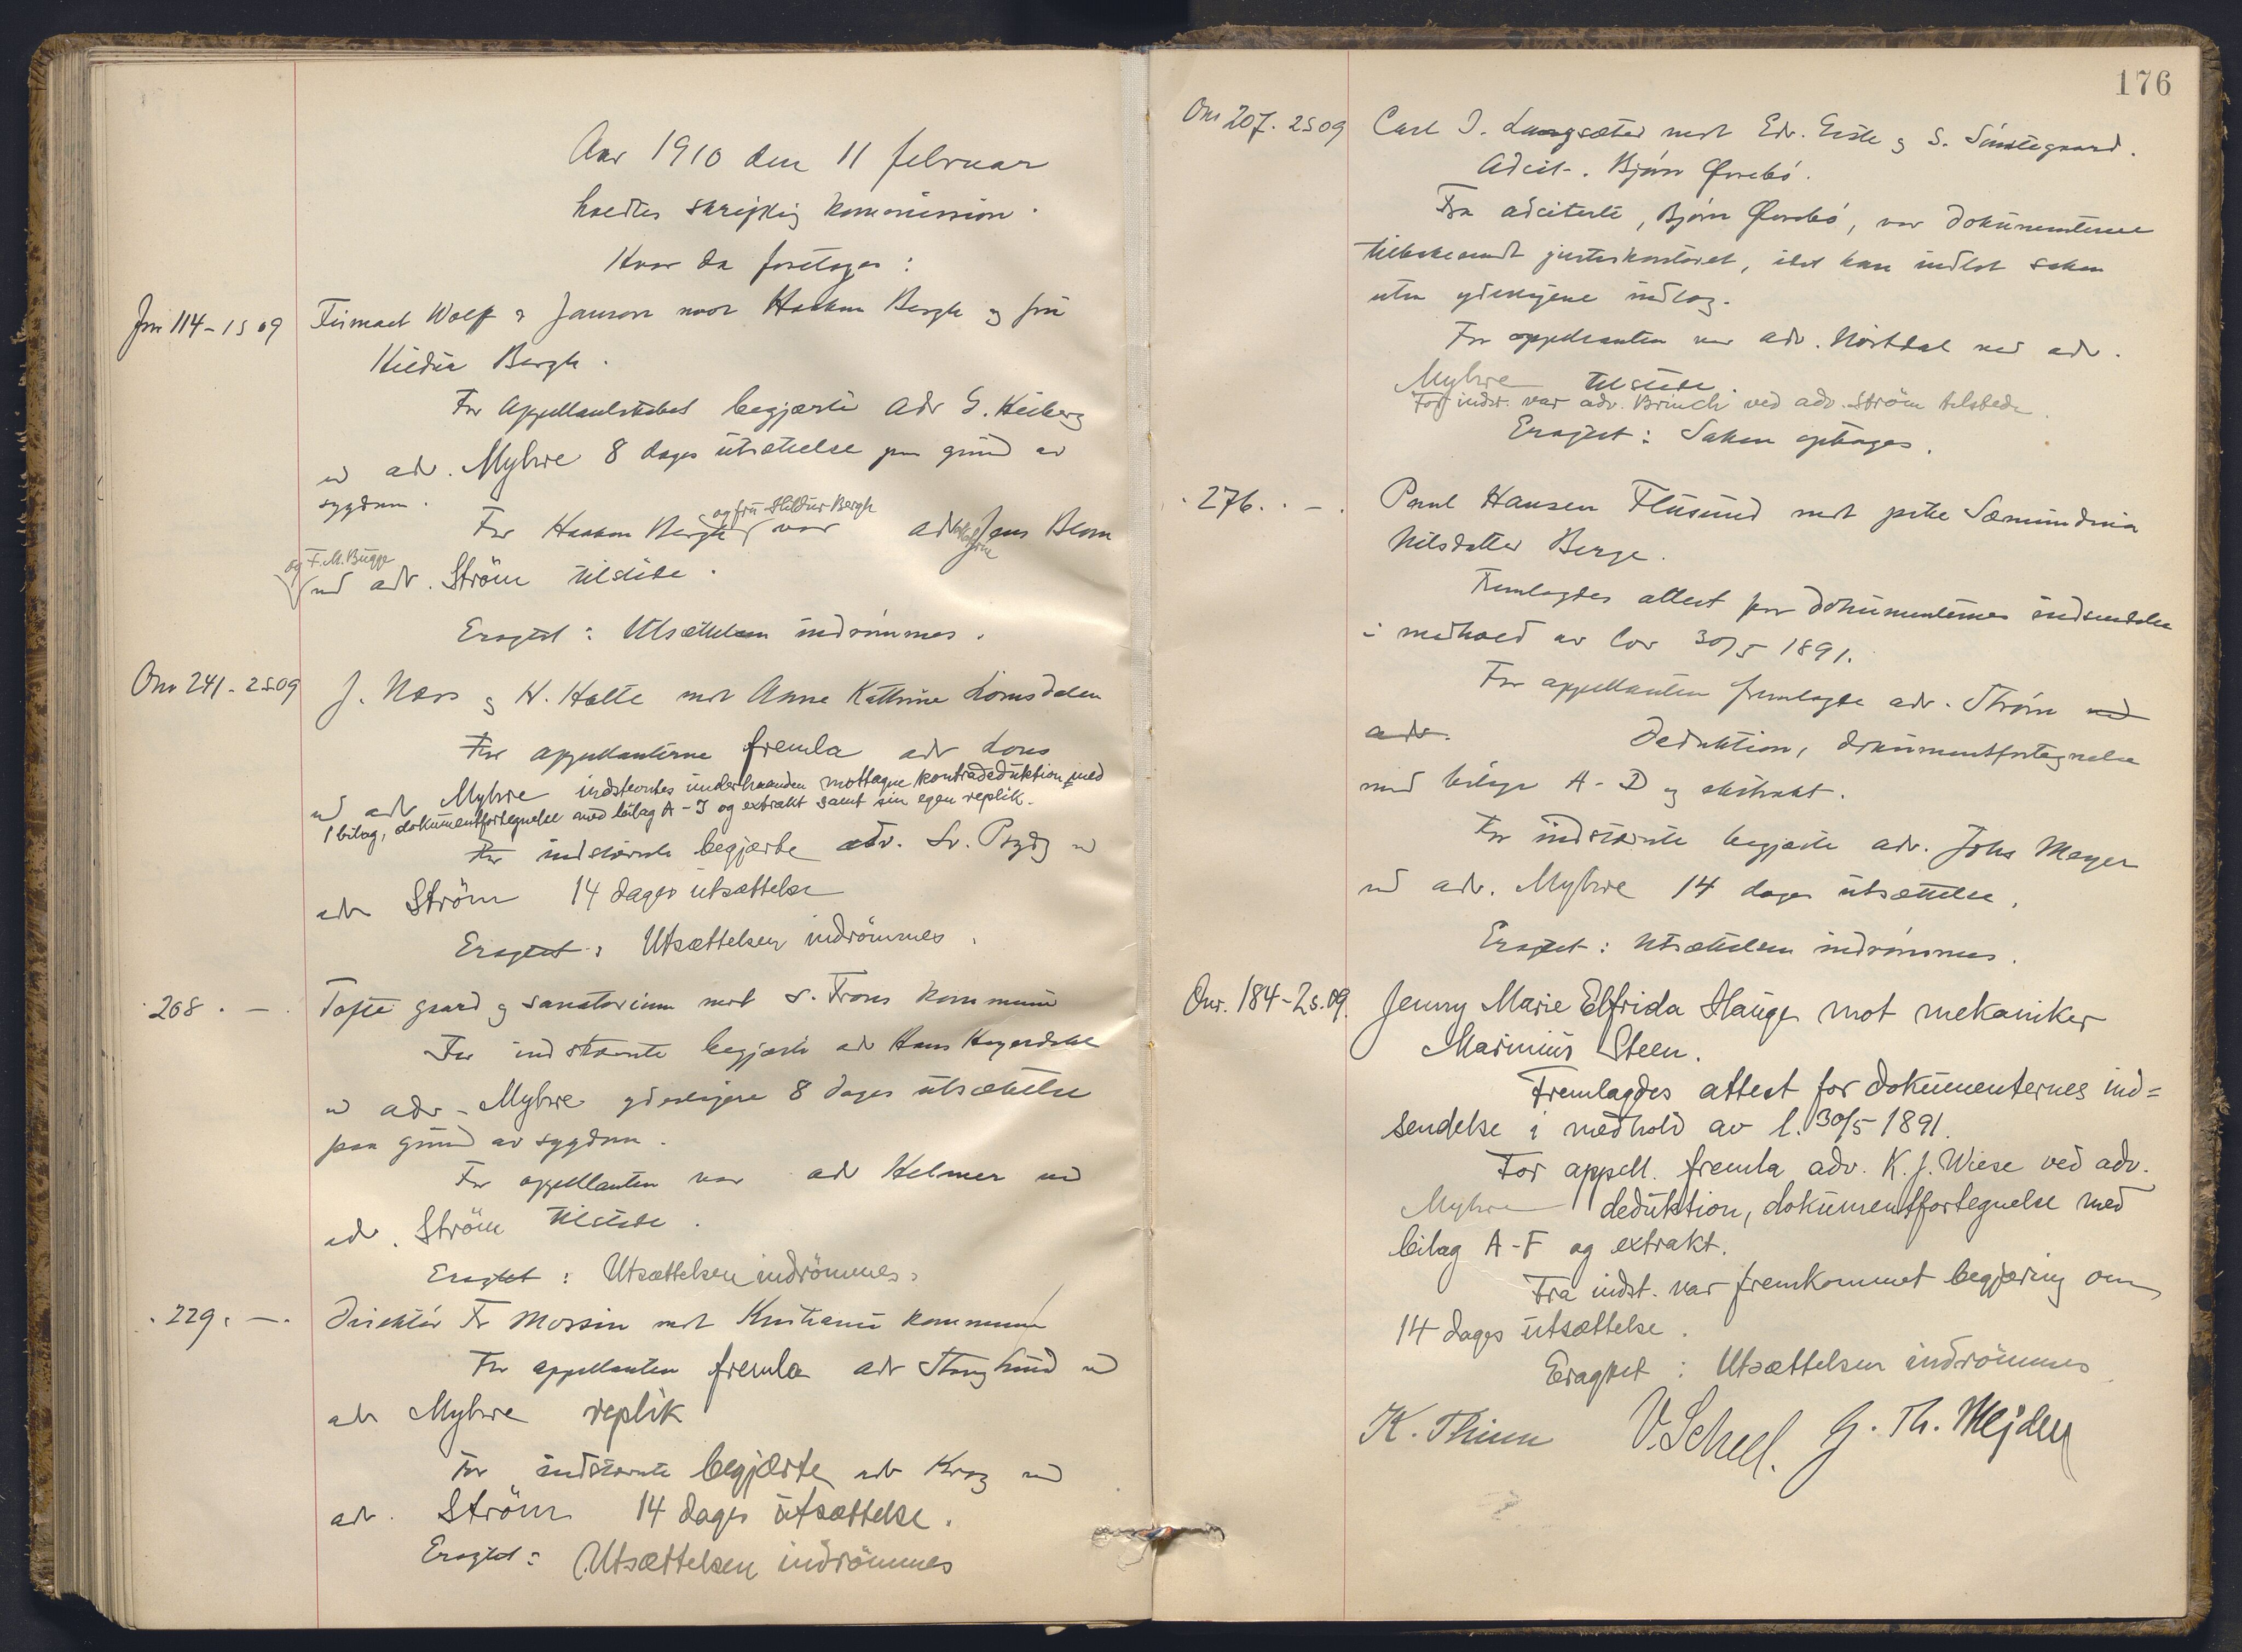 Aar 1910 den 11 februar
holdtes skriftlig kommission.
Hvor da foretoges:
Jnr 114-1S 09 Firmaet Wolff & Janson mot Haakon Bergh og fru
Hildur Bergh.
For appellantskabet begjærte adv G. Heiberg
v adv. Myhre 8 dages utsættelse paa grund av
sygdom.
For Haakon Bergh og fru Hildur Bergh var adv Jens Blom
og F. M. Bugge
ved adv. Ström tilstede.
Eragtet: Utsættelsen indrömmes.
Onr 241-2S.09 J. Næss og H. Holte mot Anne Kathrine Lomsdalen
For appellanterne fremla adv Lous
ved adv Myhre indstevntes underhaanden mottagne kontradeduktion med
1 bilag, dokumentfortegnelse med bilag A-I og extrakt samt sin egen replik.
For indstevnte begjærte adv. Sv. Prydz v
adv Ström 14 dages utsættelse
Eragtet: Utsættelsen indrömmes.
. 268 . — . Tofte gaard og sanatorium mot S. Frons kommune
For indstevnte begjærte adv Hans Heyerdahl
v adv. Myhre yderligere 8 dages utsættelse
paa grund av sygdom.
For appellanten var adv Helmer ved
adv. Ström tilstede.
Eragtet: Utsættelsen indrömmes.
. 229 . — . Direktör Fr Mossin mot Kristiania kommune
For appellanten fremla adv Stang Lund v
adv Myhre replik
For indstevnte begjærte adv Krag ved
adv. Ström 14 dages utsættelse.
Eragtet: Utsættelsen indrömmes
176
Onr 207. 2S 09 Carl I. Langsæter mot Edv. Giste og S. Simstegaard.
Adcit. Bjørn Øvrebö.
Fra adciterte, Bjørn Øvrebö, var dokumenterne
tilbakesendt justiskontoret, idet han indlot saken
uten yderligere indlæg.
For appellanten var adv. Nörstdal ved adv.
Myhre tilstede.
For indst. var adv. Brinch ved adv. Ström tilstede.
Eragtet: Saken optages.
. 276 . — . Paul Hansen Flusund mot pike Sæmundina
Nilsdatter Berge.
Fremlagdes attest for dokumenternes indsendelse
i medhold av lov 30/5 1891.
For appellanten fremlagde adv. Strøm ved
adv. Deduktion, dokumentfortegnelse
med bilage A-D og ekstrakt.
For indstevnte begjærte adv. Johs Meyer
ved adv. Myhre 14 dages utsættelse.
Eragtet: Utsættelsen indrömmes.
Onr. 184-2s.09. Jenny Marie Elfrida Hauge mot mekaniker
Marinius Steen.
Fremlagdes attest for dokumenternes ind=
sendelse i medhold av l. 30/5 1891.
For appell. fremla adv. K. J. Wiese ved adv.
Myhre deduktion, dokumentfortegnelse med
bilag A-F og extrakt.
Fra indst. var fremkommet begjæring om
14 dages utsættelse.
Eragtet: Utsættelsen indrömmes.
K. Thinn V. Scheel. G. Th. Mejdell